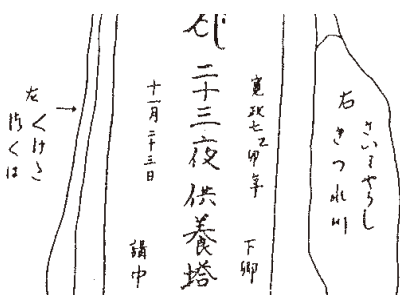 右 きつれ川
寛政七乙卯年 下郷
二十三夜供養塔
十一月二十三日 講中
左 くけた
つくは